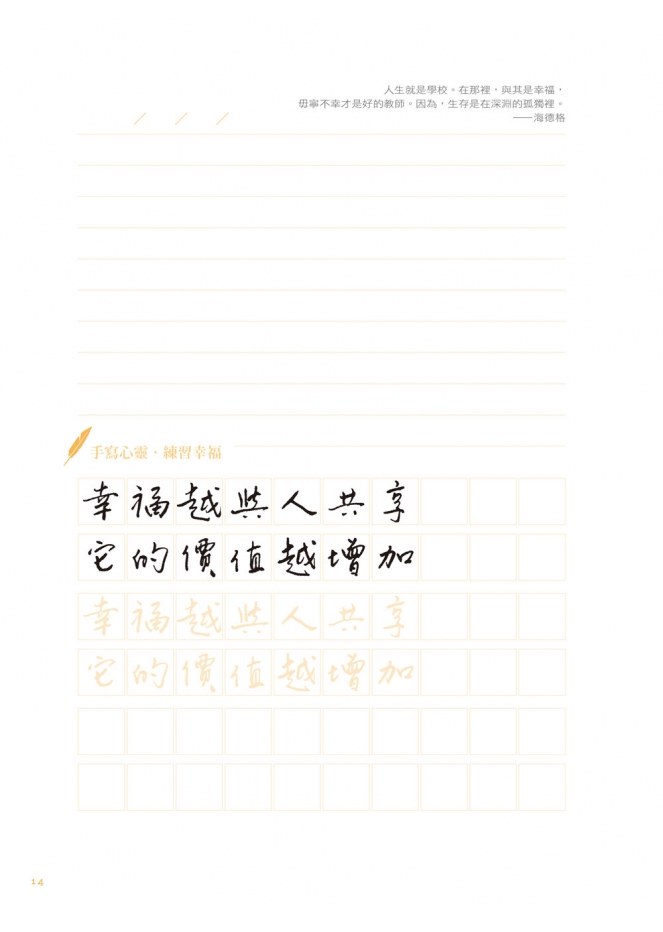 人生就是學校。在那裡，與其是幸福，
毋寧不幸才是好的教師。因為，生存是在深淵的孤獨裡。
——海德格
／　／　／
手寫心靈‧練習幸福
幸福越與人共享
它的價值越增加
幸福越與人共享
它的價值越增加
14